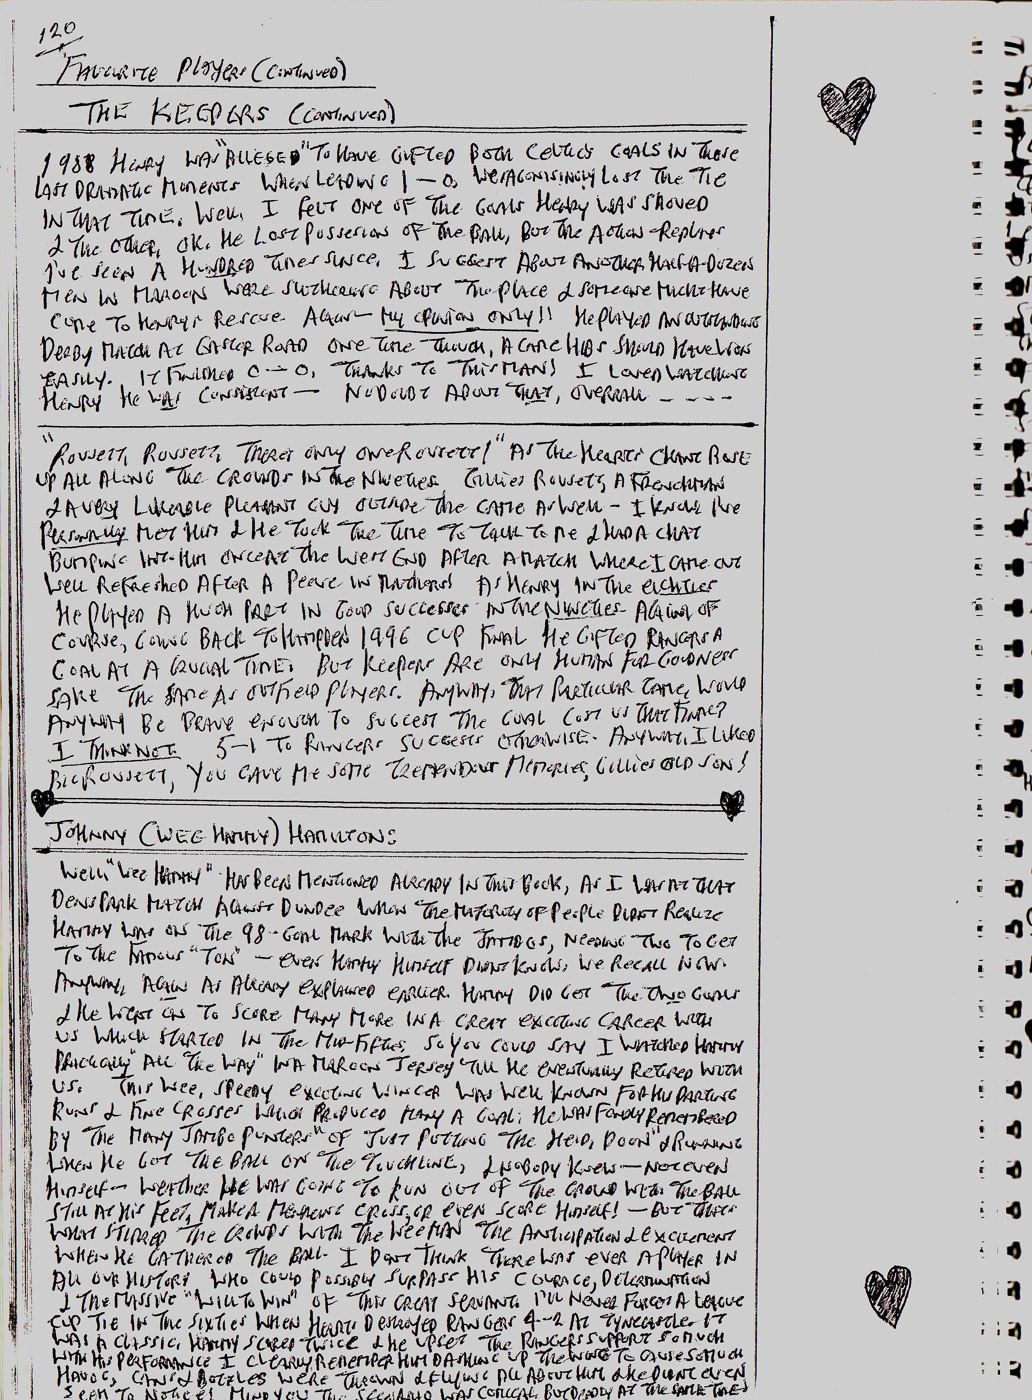 120
"Favourite Players (Continued)
The Keepers (Continued)
1988 Henry was "alleged" to have gifted both Celtics goals in those
last dramatic moments when leading 1-0, we agonisingly lost the tie
in that time. Well, I felt one of the goals Henry was shoved
& the other, ok. He lost possession of the ball, but the action-replays
I've seen a hundred times since, I suggest about another half-a-dozen
men in maroon were slithering about the place & someone might have
come to Henry's rescue. Again - my opinion only!! He played an outstanding
Derby match at Easter Road one time though, a game Hibs should have won
easily. It finished 0-0, thanks to this man! I loved watching
Henry he was consistent - no doubt about that, overall - - - -
"Roussett, Roussett, theres only one Roussett!" as the Hearts chant rose
up all along the crowds in the nineties. Gillies Roussett, a Frenchman
& a very likeable pleasant guy outside the game as well - I know I've
personally met him & he took the time to talk to me & had a chat
bumping into him once at the West End after a match where I came out
well refreshed after a peeve in Mathers! As Henry in the eighties
he played a huge part in good successes in the nineties. Again, of
course, going back to Hampden 1996 Cup Final he gifted Rangers a
goal at a crucial time. But keepers are only human for goodness
sake the same as outfield players. Anyway, that particular game, would
anyway be brave enough to suggest the goal cost us that final?
I think not. 5-1 to Rangers suggests otherwise. Anyway, I liked
big Roussett, you gave me some tremendous memories, Gillies old son!
Johnny (Wee Hammy) Hamilton:
Well, "Wee Hammy" has been mentioned already in this book, as I was at that
Dens Park match against Dundee when the majority of people didnt realize
Hammy was on the 98-goal mark with the Jambos, needing two to get
to the famous "Ton" - even Hammy himself didnt know, we recall now.
Anyway, again as already explained earlier. Hammy did get the two goals
& he went on to score many more in a great exciting career with
us which started in the mid-fifties, so you could say I watched Hammy
practically "all the way" in a maroon jersey till he eventually retired with
us. This wee, speedy exciting winger was well known for his darting
runs & fine crosses which produced many a goal. He was fondly remembered
by the many Jambo punters "of just putting the heid, doon" & running
when he got the ball on the touchline, & nobody knew - not even
himself - wether he was going to run out of the ground with the ball
still at his feet, make a menacing cross, or even score himself! - But thats
what stirred the crowds with the wee man the anticipation & excitement
when he gathered the ball. I dont think there was ever a player in
all our history who could possibly surpass his courage, determination
& the massive "will to win" of this great servant. I'll never forget a League
Cup tie in the sixties when Hearts destroyed Rangers 4-2 at Tynecastle. It
was a classic. Hammy scored twice & he upset the Rangers support so much
with his performance I clearly remember him dashing up the wing to cause so much
havoc, cans & bottles were thrown & flying all about him & he didnt even
seem to notice! Mind you the scenario was comical, but deadly at the same time!